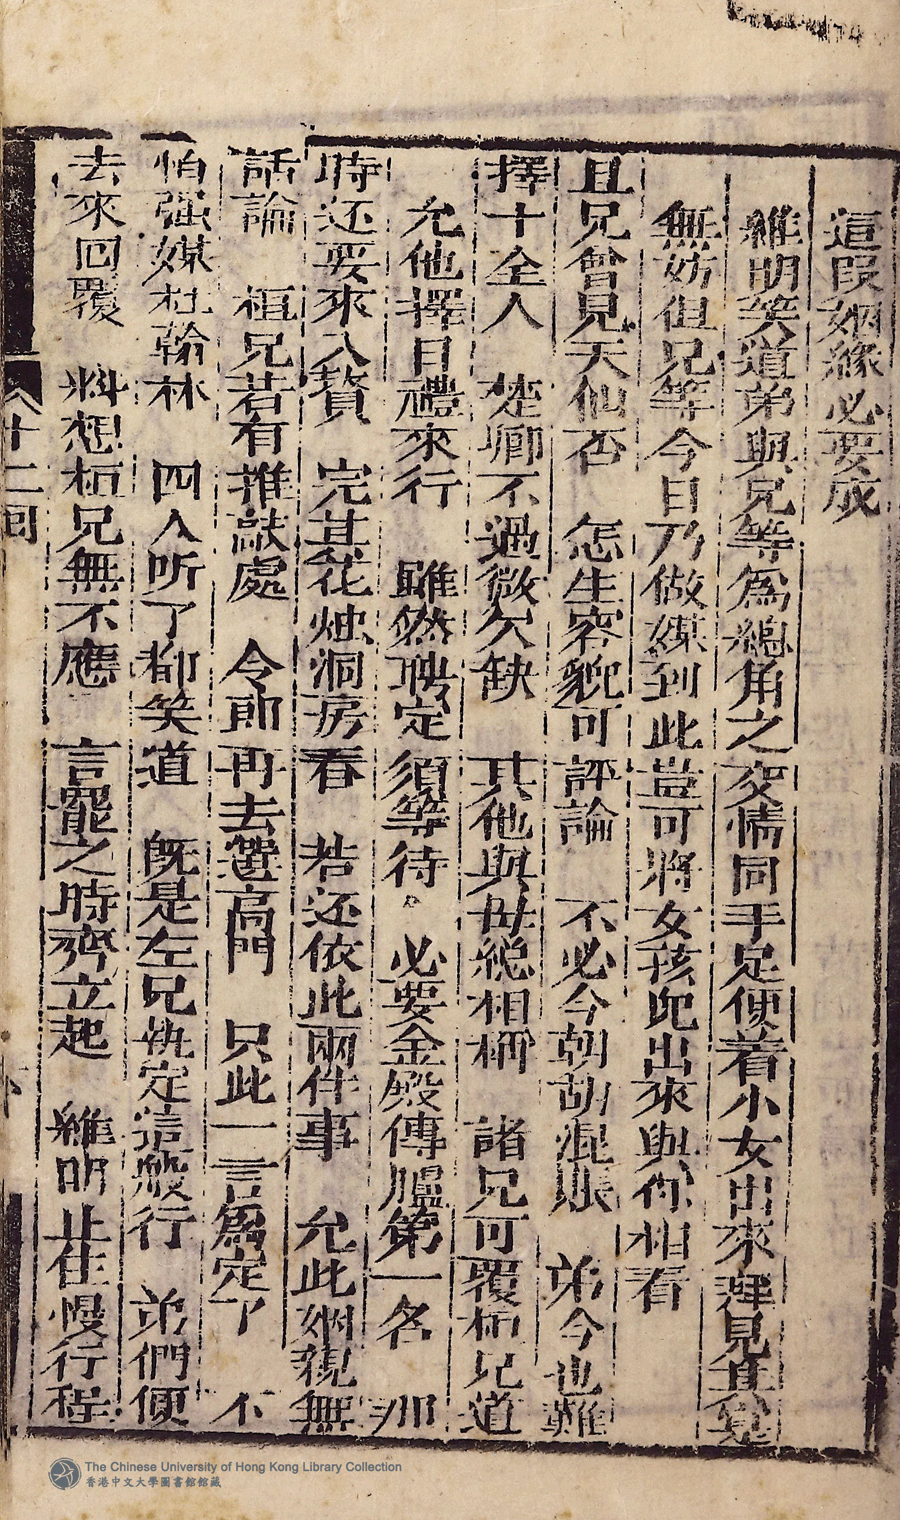 這段姻緣必要成
維明笑道弟與兄等為總角之交情同手足便着小女出來拜見其寔
無妨但兄等今日乃做媒到此豈可將女孩兒出來與你相看
且兄會見天仙否 怎生容貌可評論 不必今朝胡混賬 弟今也難
擇十全人 楚卿不過微欠缺 其他與母総相稱 諸兄可覆桓兄道
允他擇日禮來行 雖然聘定須等待。必要金殿傳臚第一名 那
時还要來入贅 完其花烛洞房春 若还依此兩件事 允此姻親無
話論 桓兄若有推敲處 令郎再去選高門 只此一言爲定了 不
怕强媒杜翰林 四人听了都笑道 旣是左兄执定這般行 弟們便
去來回覆 料想桓兄無不應 言罷之時齊立起 維明止住慢行程
十二回
The Chinese University of Hong Kong Library Collection
香港中文大學圖書館館藏